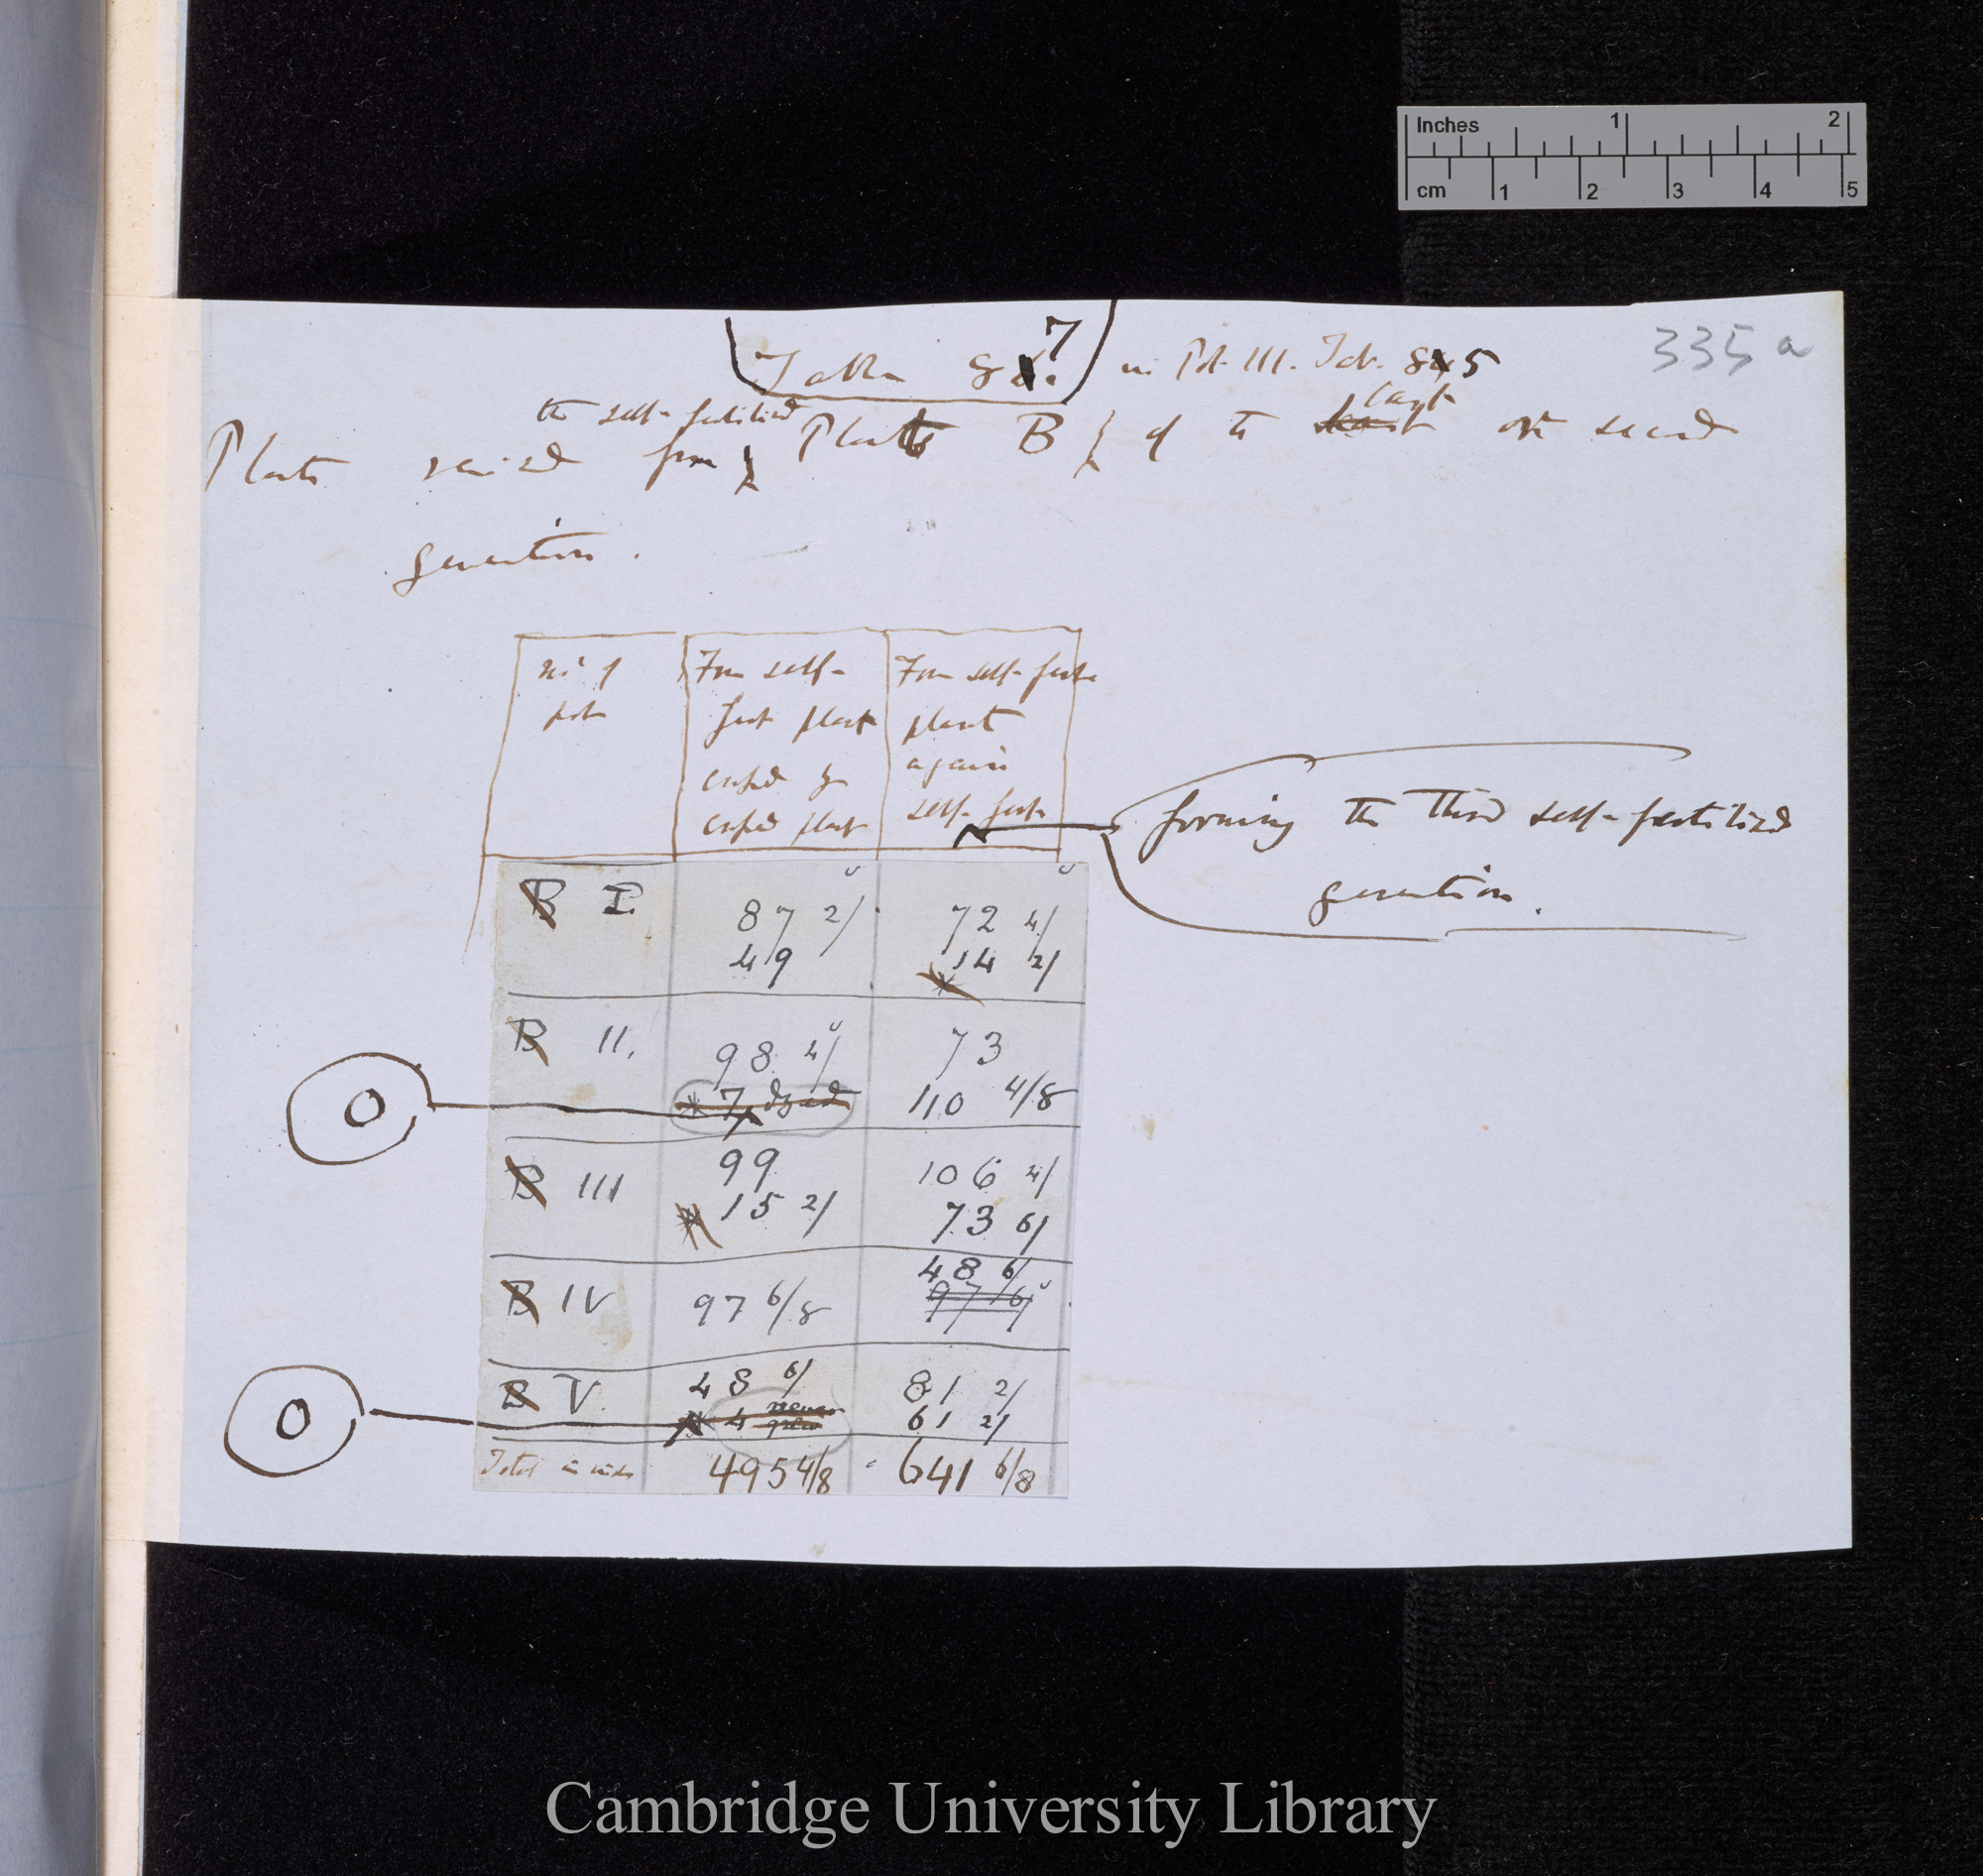 Inches 1 2
cm 1 2 3 4 5
335 a
Table 87. in Pot. III. Tab. 85
the self-fertilised last
Plants raised from Plant B of the or second
generation.
No. of pot
From self-fert plant crossed by crossed plant
From self-fert plant again self-fert
forming the third self-fertilised
generation.
B I. 87 2/ 72 4/
49 * 14 2/
B II. 98 4/ 73
0 * 7 dead 110 4/8
B III 99 106 4/
* 15 2/ 73 6/
48 6/
B IV 97 6/8 97 6/
B V. 48 6/ 81 2/
0 * 4 never grew 61 2/
Total in inches 495 4/8 641 6/8
Cambridge University Library